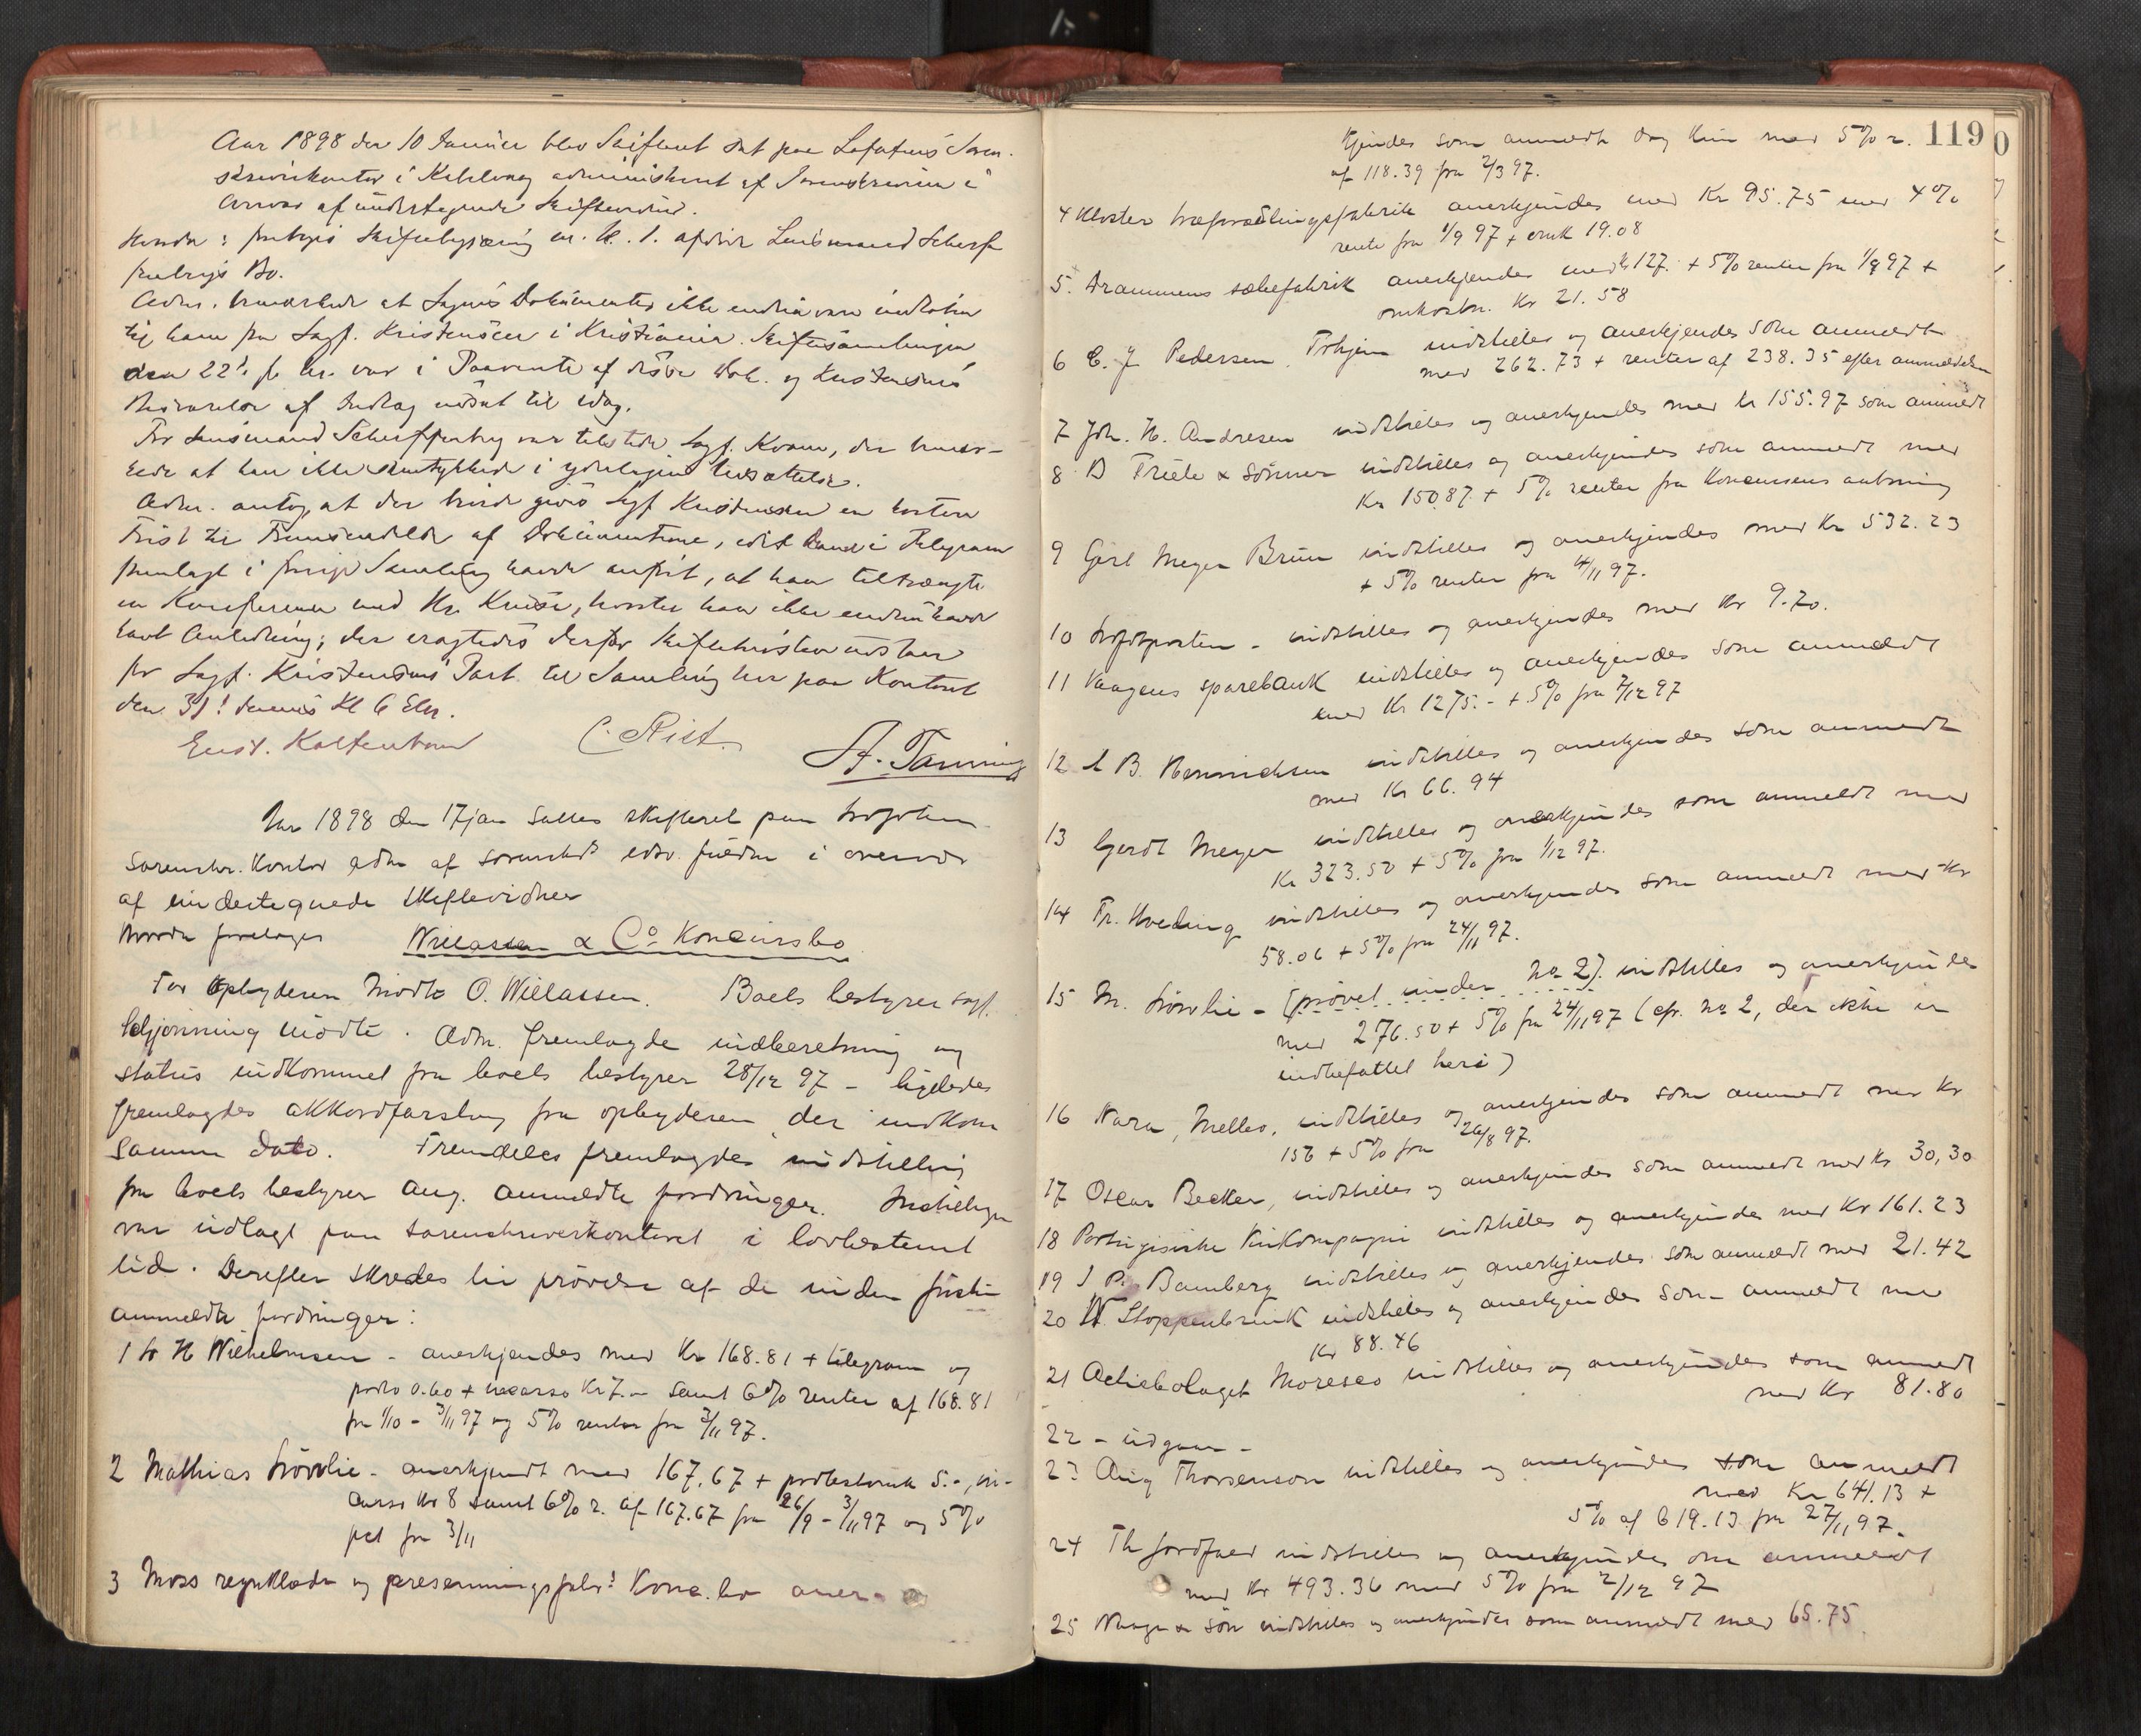 Aar 1898 den 10 Januar blev Skifteret sat paa Lofotens Soren-
skriverkontor i Kabelvaag administreret af Sorenskriveren i
Overvær af undertegnede Skiftevidner.
Hvorda: foretoges Skiftebehandling
Bo.
Adm. bemærkede at Sagens Dokumenter ikke endnu vare indkomne
til ham fra Sagf. Kristensen i Kristiania. Skiftesamlingen
den 22' f. M. var i Paavente af disse Dok. og Kristensens
Besvarelse af Indlæg udsat til idag.
For Lensmand var tilstede Sagf. Kvam, der bemær-
kede at han ikke samtykkede i yderligere Udsættelse.
Adm. antog, at der burde gives Sagf Kristensen en kortere
Frist til Fremsendelse af Dokumenterne, idet han i Telegram
fremlagt i forrige Samling havde anført, at han tiltrængte
en Konference med Hr. hvortil han ikke endnu havde
havt Anledning; der
for Sagf. Kristensens Part til Samling her paa Kontoret
den 31' dennes Kl 6 Efm.
C. Rist. A. Tanning
Aar 1898 den 17 jan sattes skifteret paa Lofotens
sorenskr. kontor adm af sorenskr. i overvær
af undertegnede skiftevidner
Hvorda foretoges Willassen & Co. Koncursbo
For opbyderen mødte O. Willassen. Boets bestyrer sagf.
mødte. Adm. fremlagde indberetning og
status indkommet fra boets bestyrer 28/12 97 - ligeledes
fremlagdes akkordforslag fra opbyderen der indkom
samme dato. Fremdeles fremlagdes indstilling
fra boets bestyrer ang. anmeldte fordringer. Indstillingen
var udlagt paa sorenskriverkontoret i lovbestemt
tid. Derefter skredes til prøvelse af de inden fristen
anmeldte fordringer:
1 W Wilhelmsen - anerkjendes med Kr 168.81 + telegram og
porto 0.60 + incasso Kr 7.- samt 6% renter af 168.81
fra 1/10 - 3/11 97 og 5% renter fra 3/11 97.
2 Mathias Lövlie - anerkjendt med 167.67 + protestomk 5.-, in-
casso Kr 8 samt 6% r. af 167.67 fra 26/9 - 3/11 97 og 5%
pct fra 3/11
3 Moss regnklæde og presenningsfabr! Konc. bo aner-
119
kjendes som anmeldt dog kun med 5% r.
af 118.39 fra 2/3 97.
4 Kloster træforædlingsfabrik anerkjendes med Kr 95.75 med 4%
rente fra 1/9 97 + omk 19.08
5. Drammens sæbefabrik anerkjendes med Kr 127. + 5% renter fra 1/9 97 +
omkostn. Kr 21.58
6 C. J. Pedersen, Trhjem indstilles og anerkjendes som anmeldt
med 262.73 + renter af 238.35 efter anmeldelsen
7 Joh. H. Andresen indstilles og anerkjendes med kr 155.97 som anmeldt
8 B Friele & Sönner indstilles og anerkjendes som anmeldt med
Kr 150.87 + 5% renter fra Koncursens aabning
9 Gert Meyer Bruun indstilles og anerkjendes med Kr 532.23
+ 5% renter fra 4/11 97.
10 Lofotposten - indstilles og anerkjendes med Kr 9.70.
11 Vaagens sparebank indstilles og anerkjendes som anmeldt
med Kr 1275.- + 5% fra 7/12 97
12 B. Henrichsen indstilles og anerkjendes som anmeldt
med Kr 66.94
13 Gerdt Meyer indstilles og anerkjendes som anmeldt med
Kr 323.50 + 5% fra 1/12 97.
14 Fr. Hveding indstilles og anerkjendes som anmeldt med Kr
58.06 + 5% fra 24/11 97.
15 M. Lövlie - (prøvet under No 2). indstilles og anerkjendes
med 276.50 + 5% fra 24/11 97 (cfr. no 2, der ikke er
indbefattet heri)
16 indstilles og anerkjendes som anmeldt med Kr
156 + 5% fra 26/8 97.
17 Oscar Becker, indstilles og anerkjendes som anmeldt med Kr 30,30
18 Portugisiske Vinkompagni indstilles og anerkjendes med Kr 161.23
19 J P. Bamberg indstilles og anerkjendes som anmeldt med 21.42
20 W. Stoppenbrink indstilles og anerkjendes som anmeldt med
Kr 88.46
21 Actiebolaget indstilles og anerkjendes som anmeldt
med Kr 81.80
22 - udgaar -
23 Aug Thorsenson indstilles og anerkjendes som anmeldt
med Kr 641.13 +
5% af 619.13 fra 27/11 97.
24 Th Jordfald indstilles og anerkjendes som anmeldt
med Kr 493.36 med 5% fra 2/12 97
25 & Sön indstilles og anerkjendes som anmeldt med 65.75